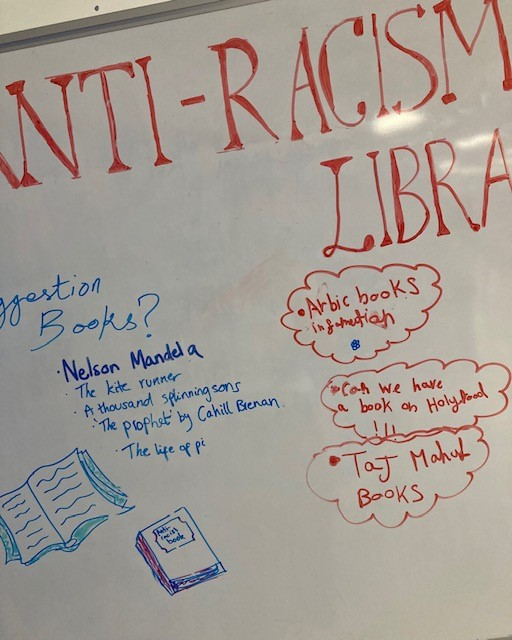 ANTI-RACISM
LIBRA
ggestion
Books?
• Nelson Mandela
• The kite runner
• A thousand splinning sons
• 'The prophet' by Cahill Brenan.
• The life of pi
• Arbic books
infometian
• Can we have
a book on Holy food
!!!
• Taj Mahul
BOOKS
Anti-
racist
book